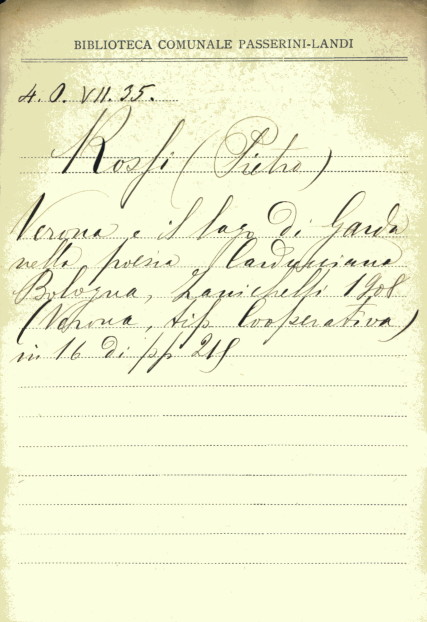 BIBLIOTECA COMUNALE PASSERINI-LANDI
4. O. VII. 35.
Rossi (Pietro)
Verona e il lago di Garda
nella poesia Carducciana
Bologna, Zanichelli 1908
(Verona, tip Cooperativa)
in 16 di pp 215